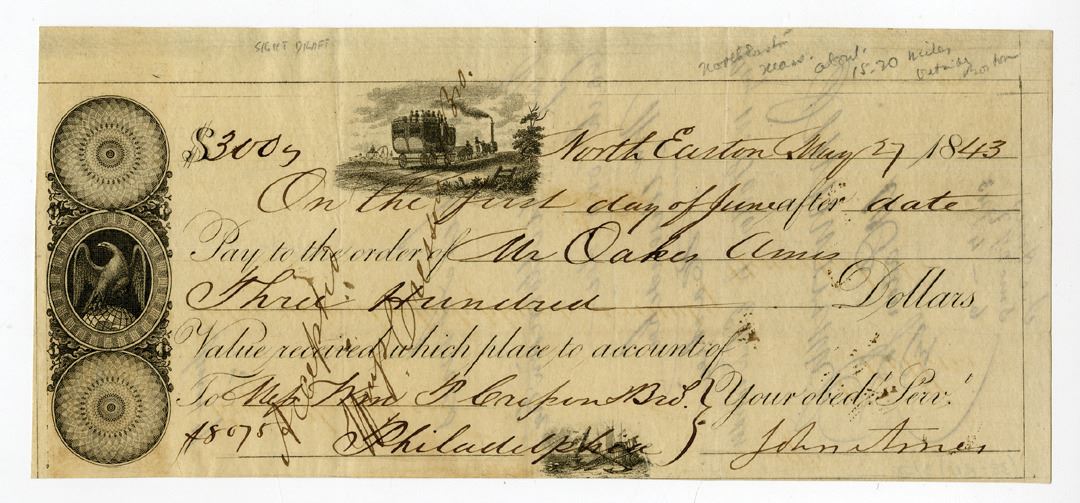 SIGHT DRAFT
North Easton
Mass. about
15-20 miles
outside
Boston
$300 North Easton May 27 1843
On the first day of June after date
Pay to the order of Mr Oakes Ames
Three Hundred Dollars
Value received which place to account of
To Wm P Your obedt. Servt.
Philadelphia } John Ames
Accepted